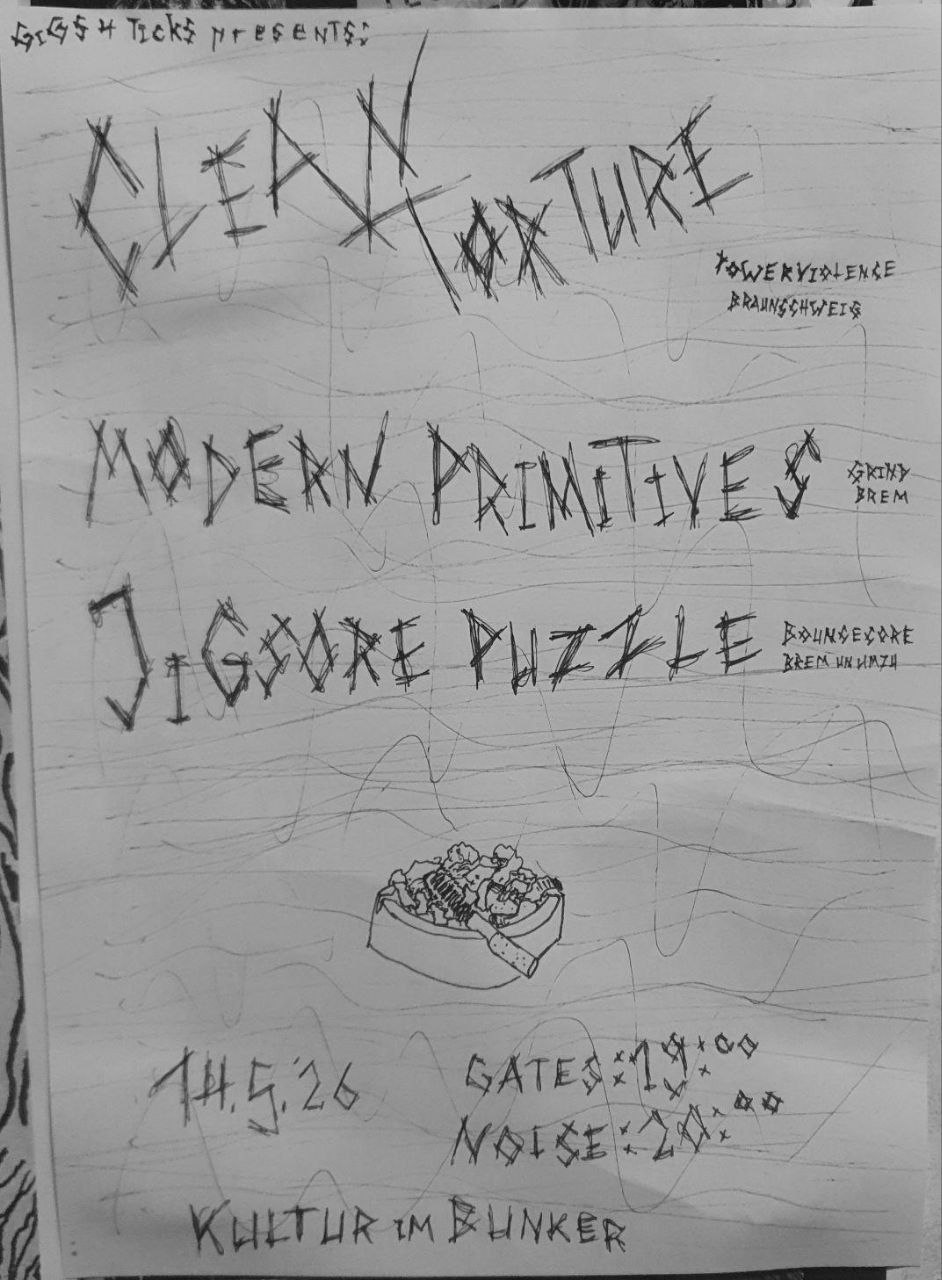 GiGS 4 TICKS presents:
CLEAN TORTURE
POWERVIOLENCE
BRAUNSCHWEIG
MODERN PRIMITIVES
GRIND
BREM
JiGSORE PUZZLE
BOUNCECORE
BREM UN UMZU
14.5.'26
GATES:19:00
NOISE:20:00
KULTUR IM BUNKER